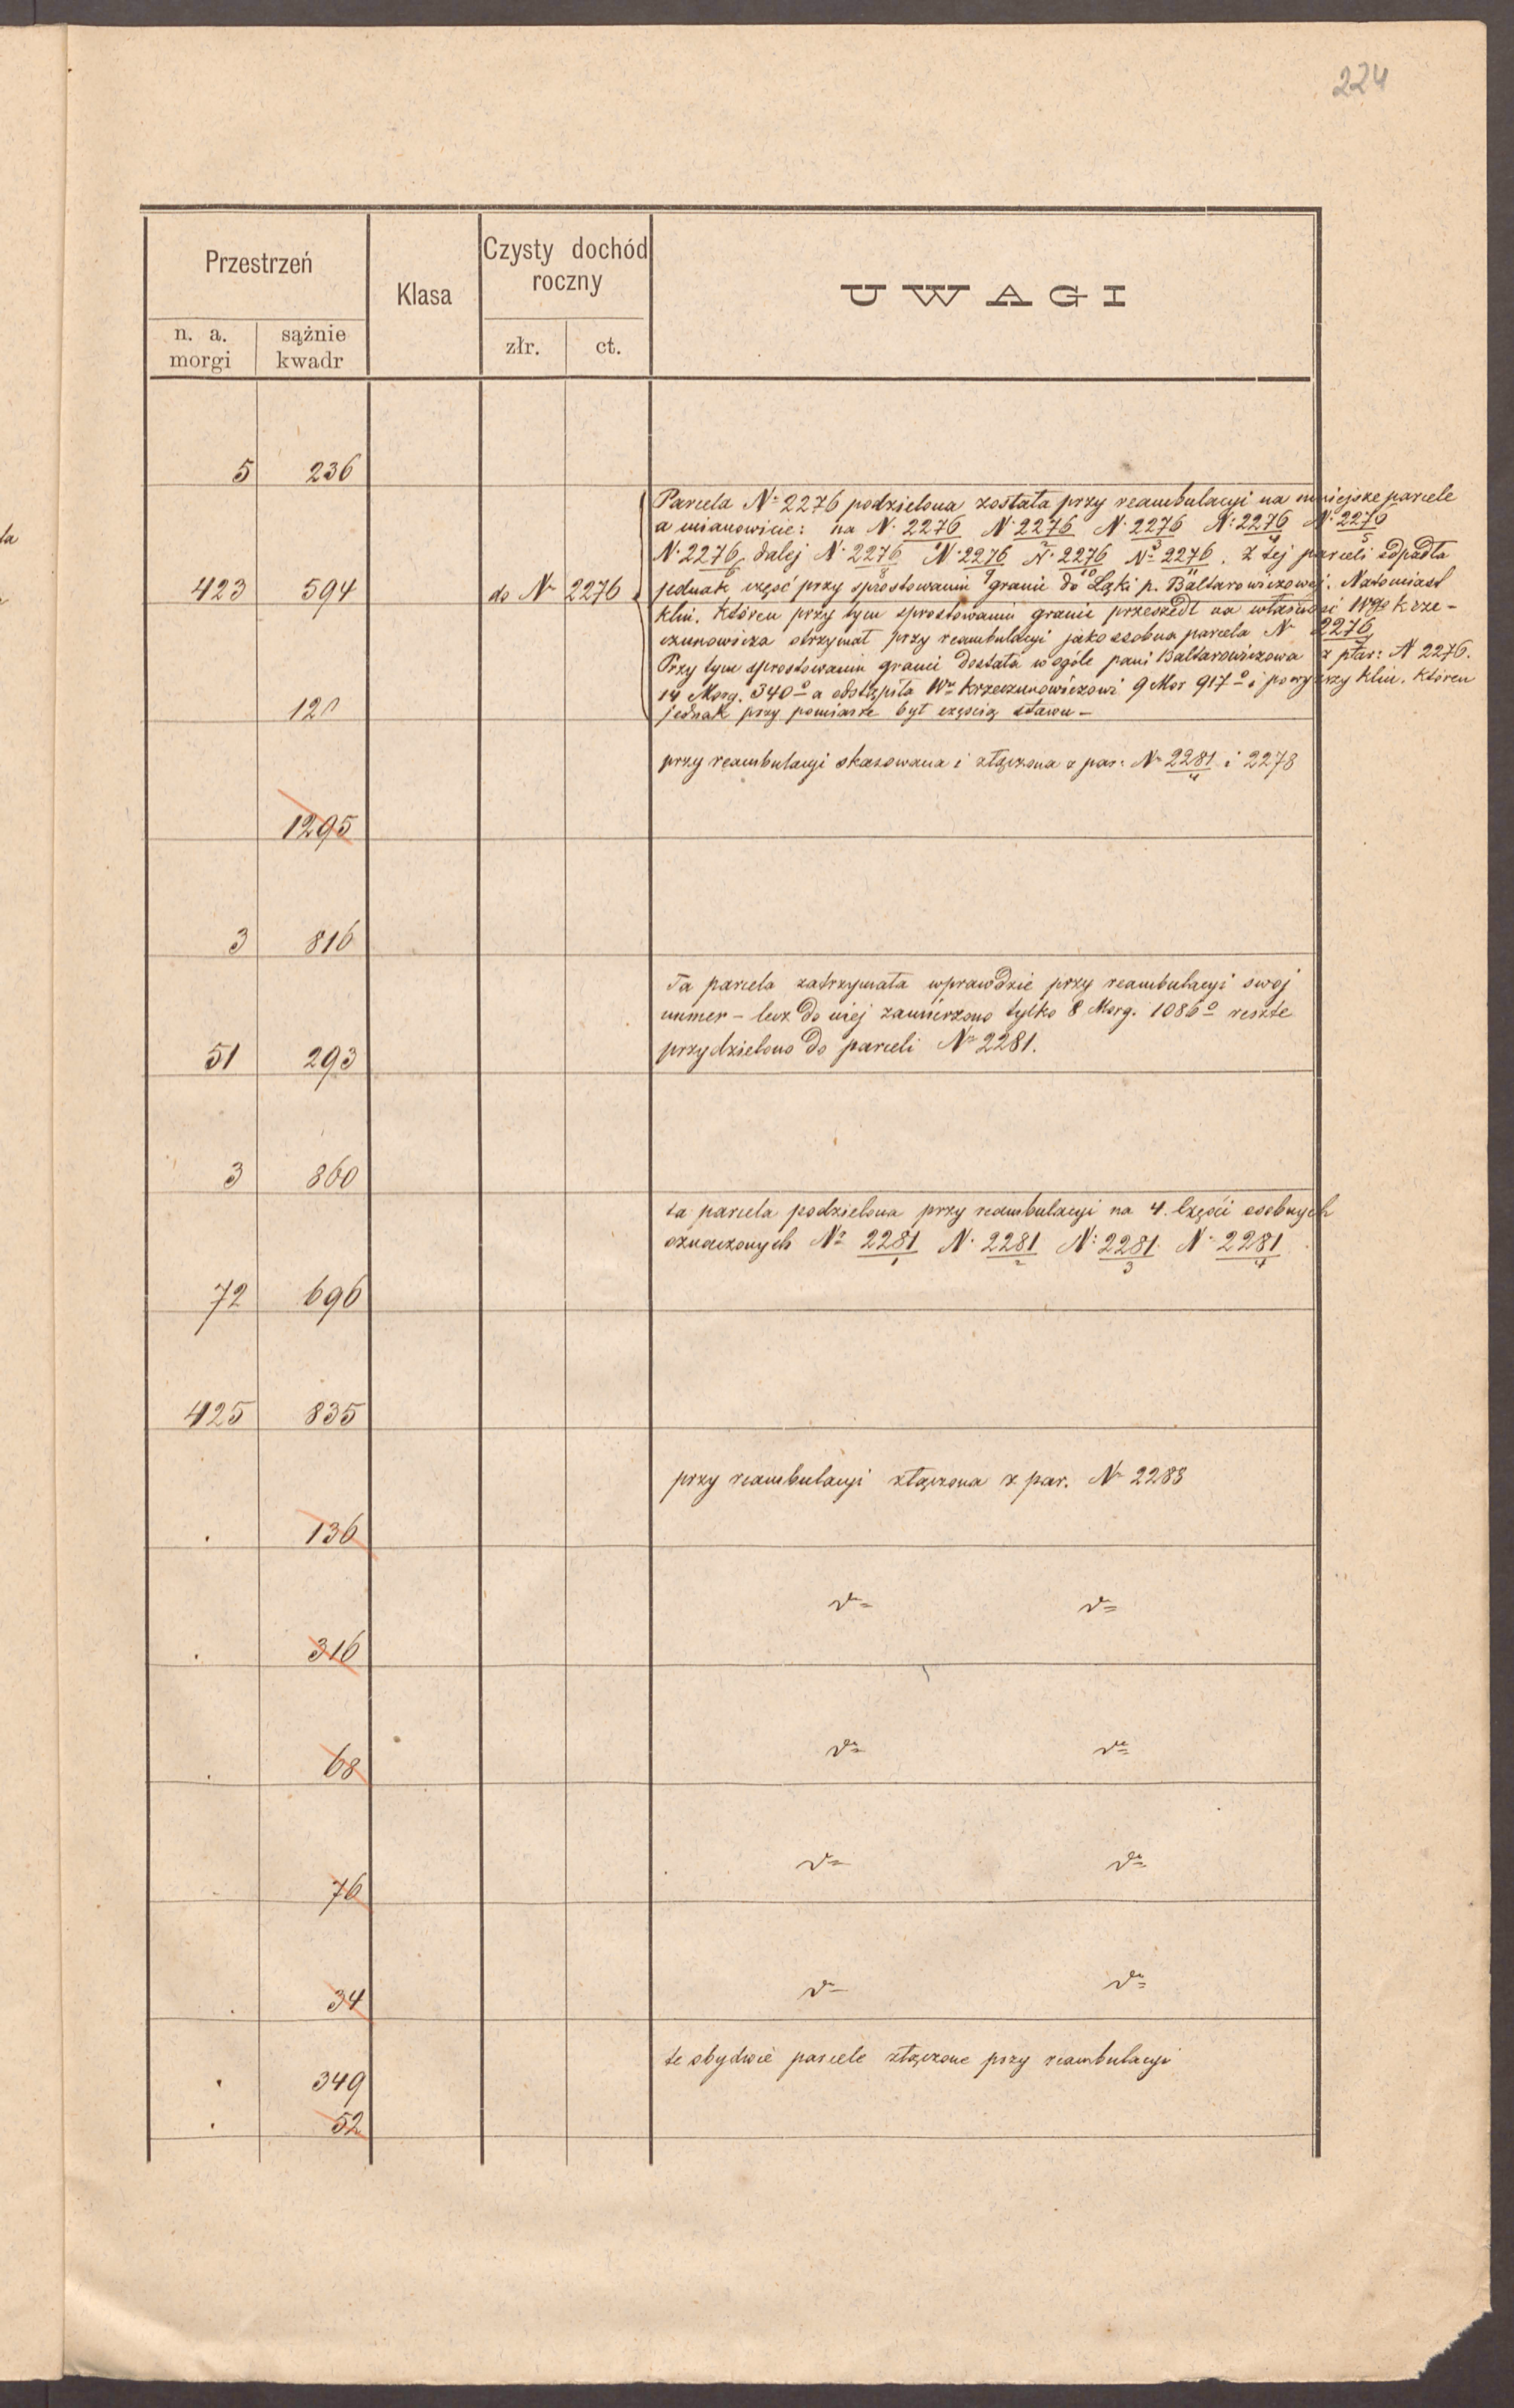 224
Przestrzeń
Klasa
Czysty dochód
roczny
UWAGI
n. a.
morgi
sążnie
kwadr
złr.
ct.
5 236
Parcela No 2276 podzielona została przy reambulacyi na mniejsze parcele
a mianowicie: na N. 2276/1 N. 2276/2 N. 2276/3 N. 2276/4 N. 2276/5
N. 2276/6 dalej N. 2276/8 N. 2276/9 N. 2276/10 No 2276/11. Z tej parceli odpadła
423 594 do Nr 2276 jednak część przy sprostowaniu granic do Łąki p. Baltarowiczowej. Natomiast
klin, któren przy tym sprostowaniu granic przeszedł na własność Wgo Krze-
czunowicza otrzymał przy reambulacyi jako osobna parcela N 2276/7
Przy tym sprostowaniu granic dostała w ogóle pani Baltarowiczowa z par: N 2276.
14 Morg. 340° a odstąpiła Wu Krzeczunowiczowi 9 Mor 917° i powyższy klin, któren
120 jednak przy pomiarze był częścią stawu –
przy reambulacyi skasowana i złączona z par: No 2281/4 i 2278
1295
3 816
Ta parcela zatrzymała wprawdzie przy reambulacyi swoj
numer – lecz do niej zamierzono tylko 8 Morg. 1086° resztę
51 293 przydzielono do parceli No 2281.
3 860
ta parcela podzielona przy reambulacyi na 4. części osobnych
oznaczonych No 2281/1 N. 2281/2 N: 2281/3 N. 2281/4
72 696
425 835
przy reambulacyi złączona z par. No 2283
. 136
do do
. 316
do do
. 68
do do
76
do do
. 34
te obydwie parcele złączone przy reambulacyi
. 349
. 52